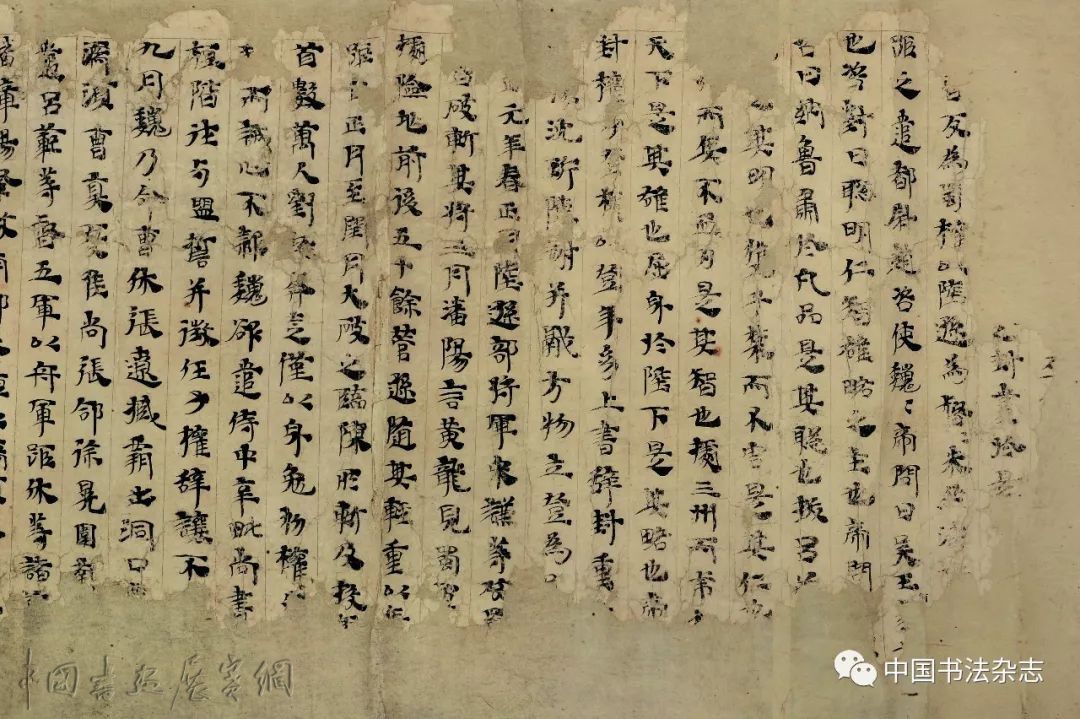 封黃
為蜀權以陸遜為督朱
距之遣都尉趙咨使魏〻帝問曰吳王
也咨對曰聦明仁智雄略之主也帝問
咨曰納魯肅於凡品是其聦也拔呂
其明也獲于禁而不害是其仁也
而兵不血刃是其智也據三州而虎
天下是其雄也屈身於陛下是其略也帝
封權子登權以登年幼上書辝封重
沈珩陳謝并獻方物立登為
元年春正月陸遜部將軍宋謙等攻蜀
皆破斬其將三月潘陽言黃龍見蜀軍
據險地前後五十餘營遜隨其輕重以兵
距自正月至閏月大破之臨陳所斬及投兵
首數萬人劉備奔走僅以身免初權
而誠心不款魏欲遣侍中辛毗尚書
桓階往與盟誓并徵任子權辭讓不
九月魏乃命曹休張遼臧霸出洞口
濡須曹真夏侯尚張郃徐晃圍南
遣呂範等督五軍以舟軍距休等諸
潘璋楊粲救南郡
中國書法展賽網
中国书法杂志